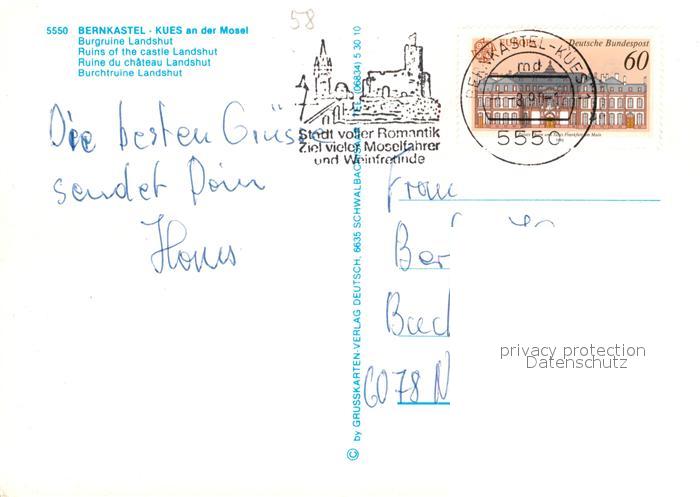 58
5550 BERNKASTEL - KUES an der Mosel
Burgruine Landshut
Ruins of the castle Landshut
Ruine du château Landshut
Burchtruine Landshut
Die besten Grüsse
sendet Dein
Hans
Stadt voller Romantik
Ziel vieler Moselfahrer
und Weinfreunde
© by GRUSSKARTEN-VERLAG DEUTSCH, 6635 SCHWALBACH (06834) 5 30 10
BERNKASTEL-KUES 1
md
5550
Deutsche Bundespost
60
Frau
Ber
6078 N
privacy protection
Datenschutz